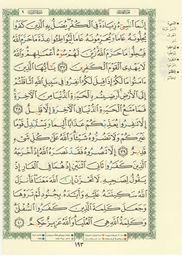 إِنَّمَا ٱلنَّسِىٓءُ زِيَادَةٌ فِى ٱلْكُفْرِ يُضَلُّ بِهِ ٱلَّذِينَ كَفَرُوا۟
يُحِلُّونَهُۥ عَامًا وَيُحَرِّمُونَهُۥ عَامًا لِّيُوَاطِـُٔوا۟ عِدَّةَ مَا حَرَّمَ ٱللَّهُ
فَيُحِلُّوا۟ مَا حَرَّمَ ٱللَّهُ زُيِّنَ لَهُمْ سُوٓءُ أَعْمَـٰلِهِمْ وَٱللَّهُ
لَا يَهْدِى ٱلْقَوْمَ ٱلْكَـٰفِرِينَ ٣٧ يَـٰٓأَيُّهَا ٱلَّذِينَ
ءَامَنُوا۟ مَا لَكُمْ إِذَا قِيلَ لَكُمُ ٱنفِرُوا۟ فِى سَبِيلِ ٱللَّهِ ٱثَّاقَلْتُمْ
إِلَى ٱلْأَرْضِ أَرَضِيتُم بِٱلْحَيَوٰةِ ٱلدُّنْيَا مِنَ ٱلْـَٔاخِرَةِ
فَمَا مَتَـٰعُ ٱلْحَيَوٰةِ ٱلدُّنْيَا فِى ٱلْـَٔاخِرَةِ إِلَّا قَلِيلٌ ٣٨
إِلَّا تَنفِرُوا۟ يُعَذِّبْكُمْ عَذَابًا أَلِيمًا وَيَسْتَبْدِلْ قَوْمًا
غَيْرَكُمْ وَلَا تَضُرُّوهُ شَيْـًٔا وَٱللَّهُ عَلَىٰ كُلِّ شَىْءٍ
قَدِيرٌ ٣٩ إِلَّا تَنصُرُوهُ فَقَدْ نَصَرَهُ ٱللَّهُ إِذْ أَخْرَجَهُ
ٱلَّذِينَ كَفَرُوا۟ ثَانِىَ ٱثْنَيْنِ إِذْ هُمَا فِى ٱلْغَارِ إِذْ
يَقُولُ لِصَـٰحِبِهِۦ لَا تَحْزَنْ إِنَّ ٱللَّهَ مَعَنَا فَأَنزَلَ
ٱللَّهُ سَكِينَتَهُۥ عَلَيْهِ وَأَيَّدَهُۥ بِجُنُودٍ لَّمْ تَرَوْهَا وَجَعَلَ
كَلِمَةَ ٱلَّذِينَ كَفَرُوا۟ ٱلسُّفْلَىٰ
وَكَلِمَةُ ٱللَّهِ هِىَ ٱلْعُلْيَا وَٱللَّهُ عَزِيزٌ حَكِيمٌ ٤٠
١٩٣